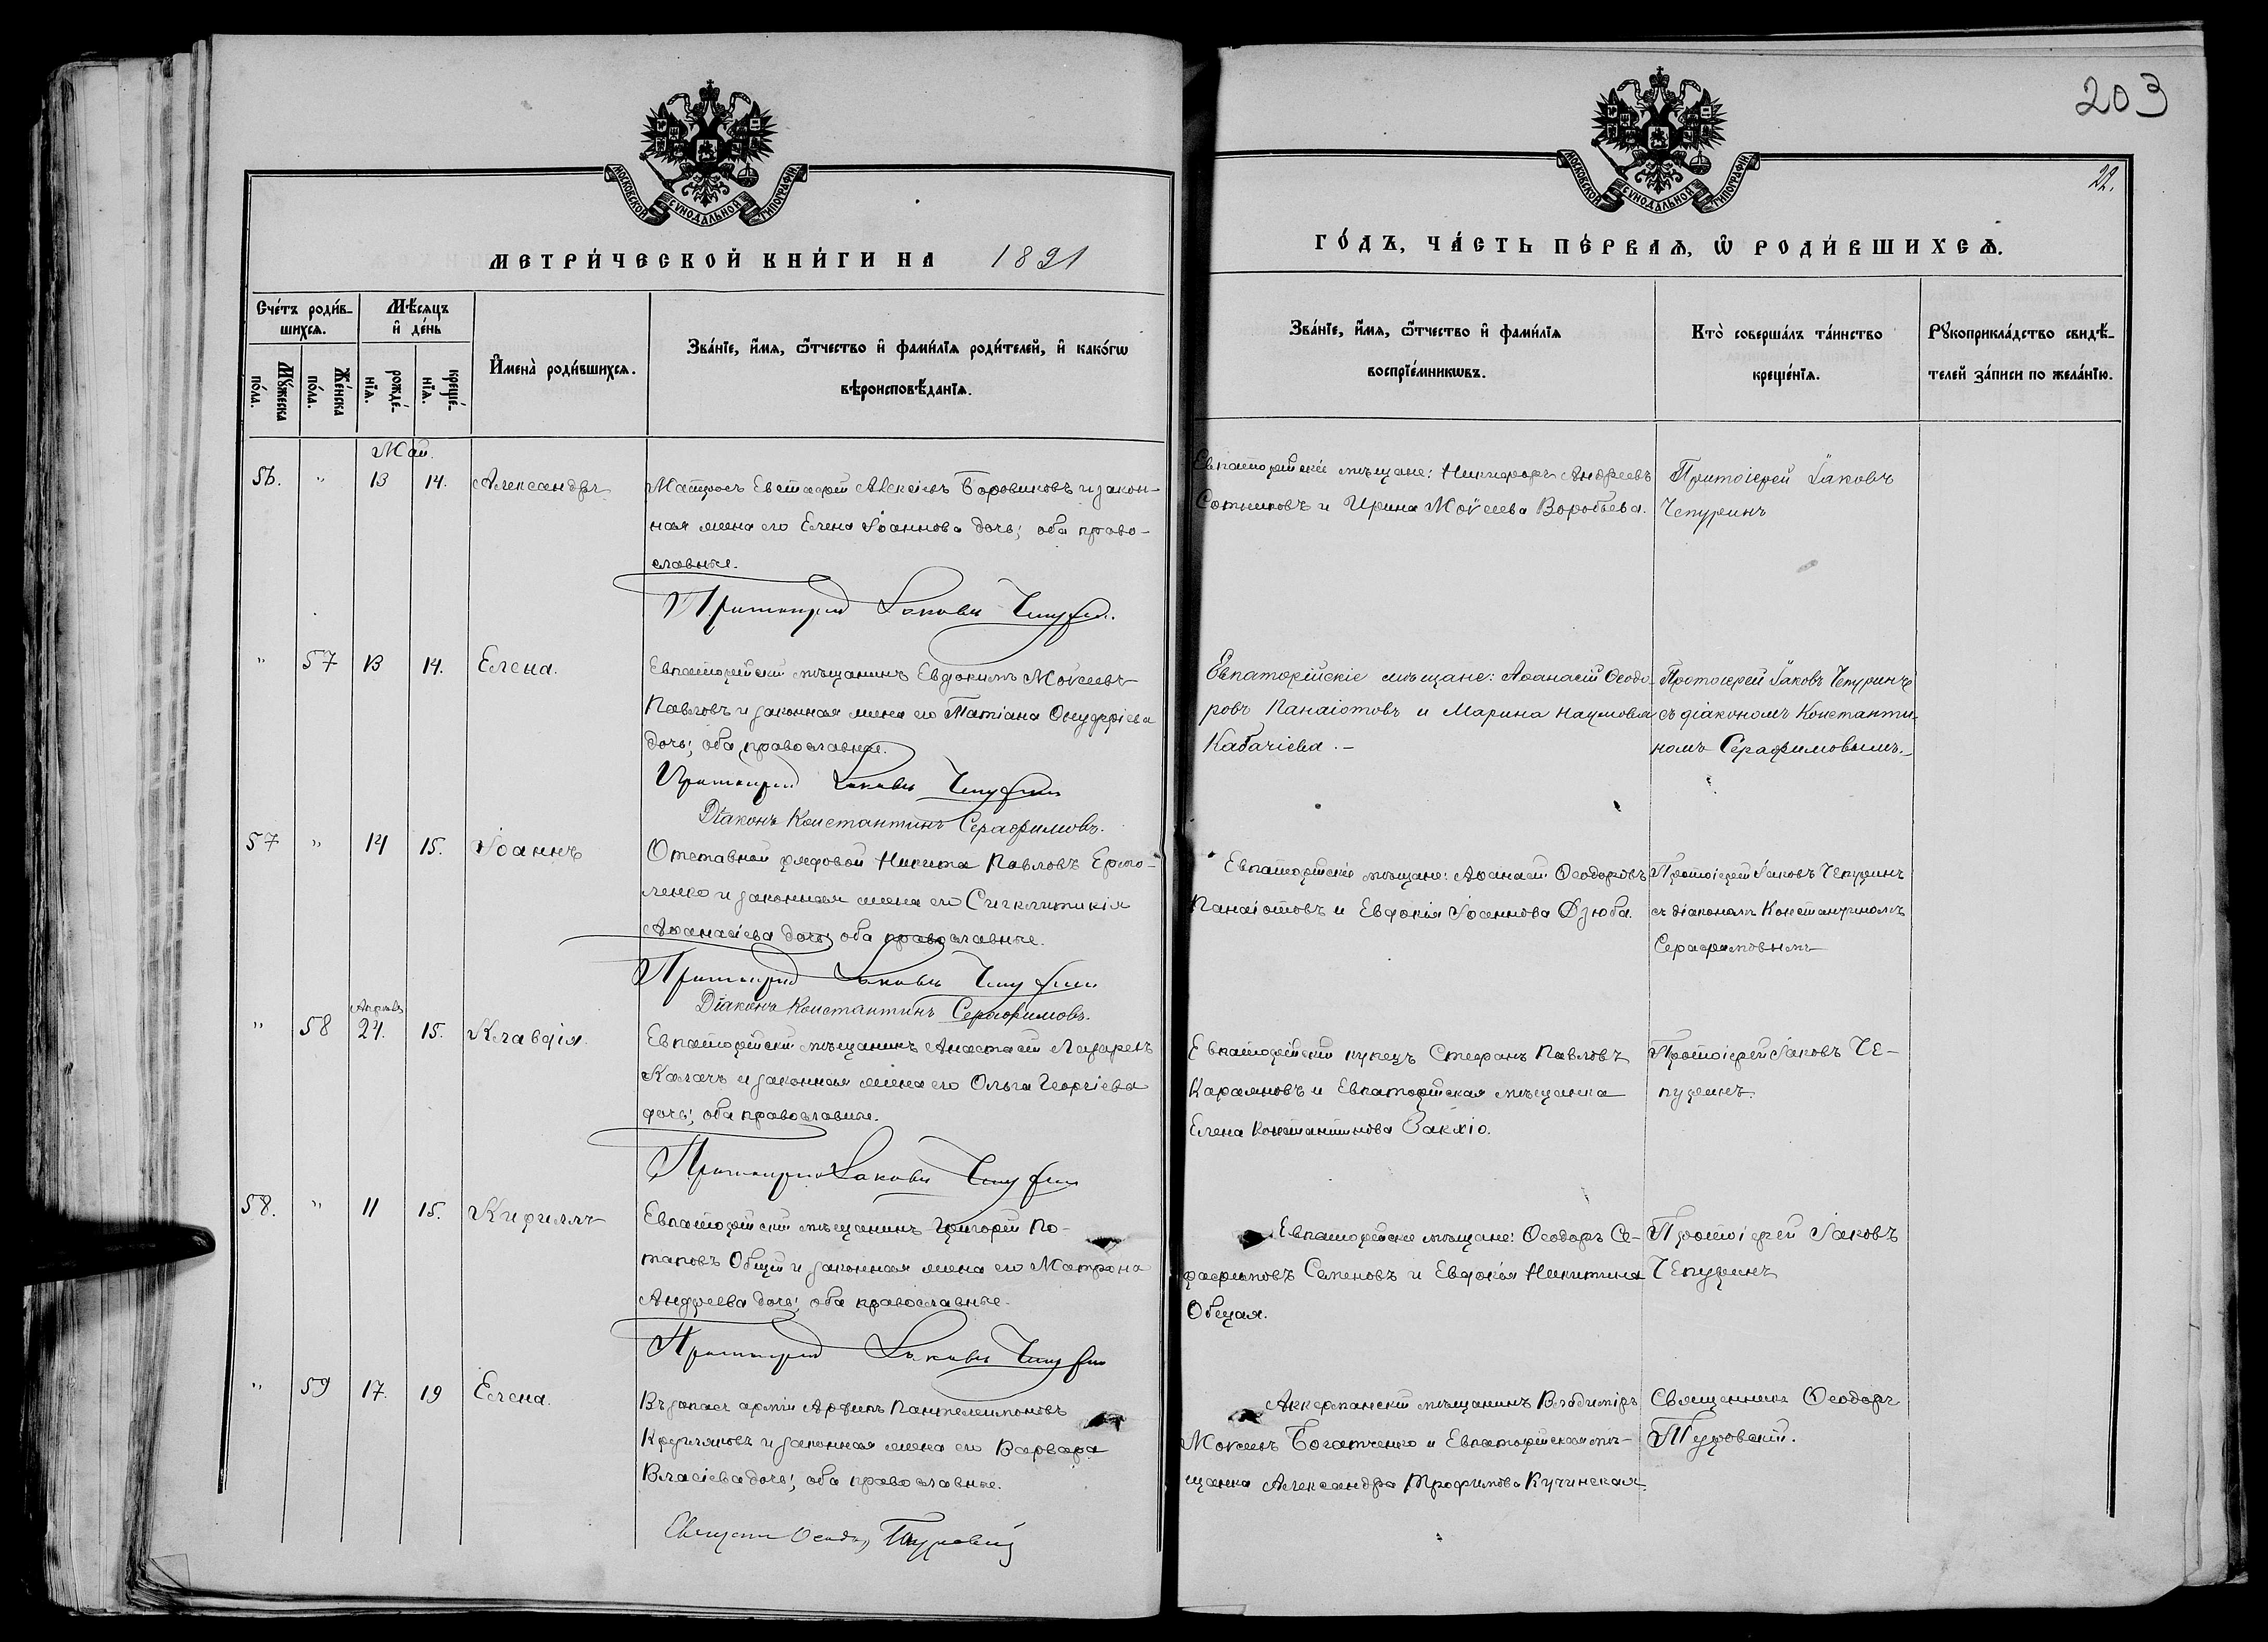 203
22.
МОСКОВСКОЙ СѴНОДАЛЬНОЙ ТИПОГРАФІИ
МОСКОВСКОЙ СѴНОДАЛЬНОЙ ТИПОГРАФІИ
МЕТРИ́ЧЕСКОЙ КНИ́ГИ НА 1891
ГО́ДЪ, ЧА́СТЬ ПЕ́РВАѦ, Ѡ҆ РОДИ́ВШИХСѦ.
Сче́тъ роди́в-
шихсѧ.
Мꙋ́жеска по́ла.
Же́нска по́ла.
Мѣ́сѧцъ
и҆ де́нь
рожде́-
нїѧ.
креще́-
нїѧ.
И҆мена̀ роди́вшихсѧ.
Зва́нїе, и҆́мѧ, ѻ҆́тчество и҆ фами́лїѧ роди́телей, и҆ како́гѡ
вѣроисповѣ́данїѧ.
Зва́нїе, и҆́мѧ, ѻ҆́тчество и҆ фами́лїѧ
воспрїе́мникѡвъ.
Кто̀ соверша́лъ та́инство
креще́нїѧ.
Рꙋкоприкла́дство свидѣ́-
телей за́писи по жела́нїю.
Май.
56. " 13 14. Александръ
Матросъ Евстафій Алексіевъ Боровиковъ и закон-
ная жена его Елена Іоаннова дочь; оба право-
славные.
Протоіерей Іаковъ Чепуринъ.
Евпаторійскіе мѣщане: Никифоръ Андреевъ
Сотниковъ и Ирина Моѵсеева Воробьева.
Протоіерей Іаковъ
Чепуринъ
" 57 13 14. Елена.
Евпаторійскій мѣщанинъ Евдокимъ Моѵсеевъ
Павловъ и законная жена его Татіана Онуфріева
дочь; оба православные.
Протоіерей Іаковъ Чепуринъ
Діаконъ Константинъ Серафимовъ.
Евпаторійскіе мѣщане: Аѳанасій Ѳеодо-
ровъ Панаіотовъ и Марина Наумова
Кабачіева.–
Протоіерей Іаковъ Чепуринъ
съ діакономъ Константи-
номъ Серафимовымъ.–
57 " 14 15. Іоаннъ
Отставной рядовой Никита Павловъ Ермо-
ленко и законная жена его Сигклитикія
Аѳанасіева дочь; оба православные.
Протоіерей Іаковъ Чепуринъ
Діаконъ Константинъ Серафимовъ.
Евпаторійскіе мѣщане: Аѳанасій Ѳеодоровъ
Панаіотовъ и Евдокія Іоаннова Дзюба.
Протоіерей Іаковъ Чепуринъ
съ діакономъ Константиномъ
Серафимовымъ
Апрѣль
" 58 24. 15. Клавдія.
Евпаторійскій мѣщанинъ Анастасій Лазаревъ
Калачъ и законная жена его Ольга Георгіева
дочь; оба православные.
Протоіерей Іаковъ Чепуринъ
Евпаторійскій купецъ Стефанъ Павловъ
Караяновъ и Евпаторійская мѣщанка
Елена Константинова Закхіо.
Протоіерей Іаковъ Че-
пуринъ.
58. " 11 15. Кириллъ
Евпаторійскій мѣщанинъ Григорій По-
таповъ Общій и законная жена его Матрона
Андреева дочь; оба православные.
Протоіерей Іаковъ Чепуринъ
Евпаторійскіе мѣщане: Ѳеодоръ Се-
рафимовъ Семеновъ и Евдокія Никитина
Общая.
Протоіерей Іаковъ
Чепуринъ
" 59 17. 19 Елена.
Въ запасѣ арміи Архипъ Пантелеимоновъ
и законная жена его Варвара
Власіева дочь; оба православные.
Священникъ Ѳеодоръ Туровскій
Аккерманскій мѣщанинъ Владиміръ
Моѵсеевъ Богатченко и Евпаторійская мѣ-
щанка Александра Трофимова Кучинская
Священникъ Ѳеодоръ
Туровскій.